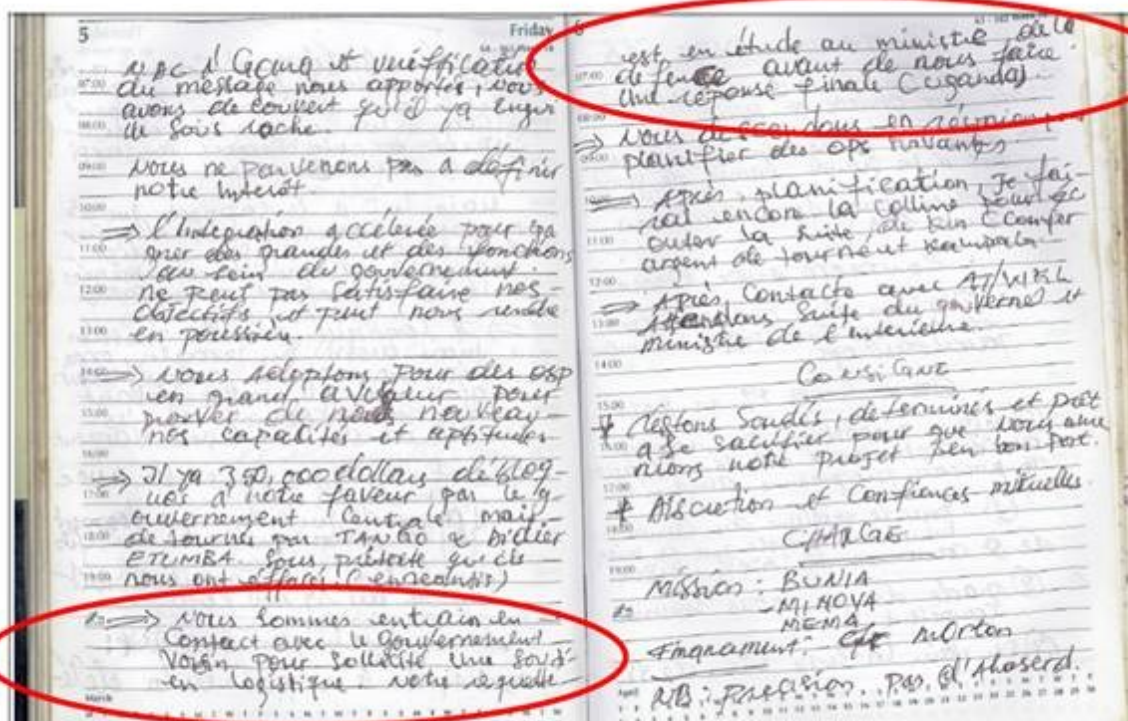 5 Friday
du message nous apportés, nous
avons de couvert qu'il ya
de sous
Nous ne parvenons pas a définir
notre Interêt.
⇒ l'intégration accélérée pour ga
gner des grandes et des fonctions
au sein du gouvernement.
ne peut pas satisfaire nos
objectifs et peut nous rendre
en poussière.
⇒ Nous adoptons pour des osp
en grand pour
prouver de nous nouveau
nos capacités et aptitudes
⇒ Il ya 350,000 dollars débloq-
ués a notre faveur par le g-
ouvernement Centrale mais
detournés par TANGO & Didier
ETUMBA. Sous prétexte qu'ils
nous ont effacés
⇒ Nous sommes entrain en
Contact avec le Gouvernement
Voisin pour Sollicité Une Souti-
en logistique. Notre requette
March
6
est en étude au ministre de la
defence avant de nous faire
Une réponse finale (uganda)
⇒ Nous descendons en réunion
planifier des ops
⇒ Après planification, Je fai-
rai encore la colline pour éc
outer la suite de
argent de et Kampala
⇒ Après Contacte avec
Attendons Suite du et
ministre de l'interieure.
CONSIGNE
* Réstons Soudés, determinés et prêt
a se sacrifier pour que nous ame
nions notre projet bon port.
* Discretion et Confiances mutuelles.
CHARGE
Mission : BUNIA
- MINOVA
Financement: Morton
NB: Precision, Pas d'
April